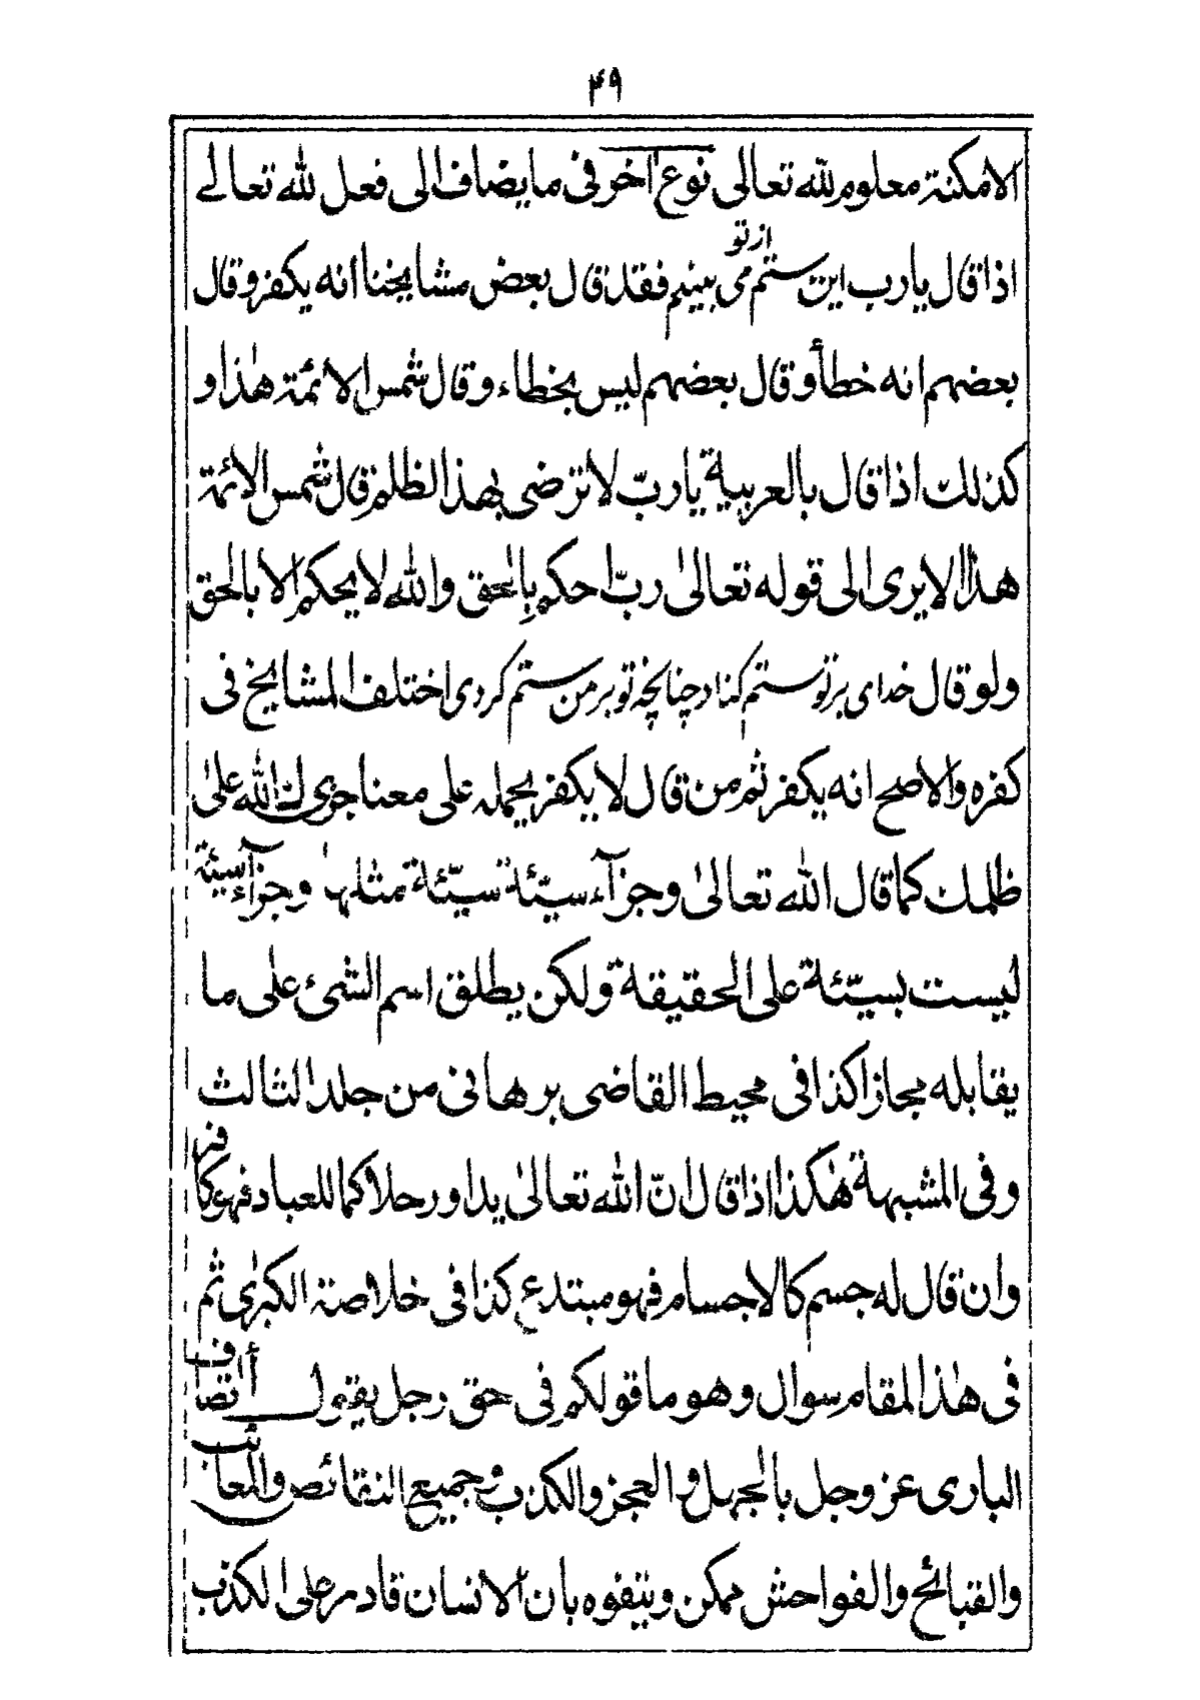 ۴۹
الامكنة معلوم لله تعالى نوع آخر فى ما يضاف الى فعل لله تعالے
اذا قال يارب اين ستم از تو مى بينم فقد قال بعض مشايخنا أنه يكفر وقال
بعضهم انه خطأ وقال بعضهم ليس بخطاء وقال شمس الائمة هٰذا و
كذلك اذا قال بالعربية يا ربّ لا ترضى بهذا الظلم قال شمس الائمة
هذا الا يرى الى قوله تعالىٰ ربّ احكم بِالحق والله لا يحكم الا بالحق
ولو قال خداى بر تو ستم كناد چنانچه تو بر من ستم كردى اختلف المشايخ فى
كفره والاصح انه يكفر ثم من قال لا يكفر يحمله على معنا جزى لك الله علىٰ
ظلمك كما قال الله تعالىٰ وجزآء سيّئة سيّئة مثلها وجزآء سيئة
ليست بسيّئة على الحقيقة ولكن يطلق اسم الشئ على ما
يقابله مجازا كذا فى محيط القاضى برهانى من جلد الثالث
وفى المشبهة هٰكذا اذا قال انّ الله تعالىٰ يدا ورجلا كما للعباد فهو كافر
وان قال له جسم كالاجسام فهو مبتدع كذا فى خلاصة الكبرٰى ثم
فى هٰذا المقام سوال وهو ما قولكم فى حق رجل يقول أ اتصاف
البارى عز وجل بالجهل والعجز والكذب وجميع النقائص والمعائب
والقبائح والفواحش ممكن ويتفوه بان الانسان قادر على الكذب